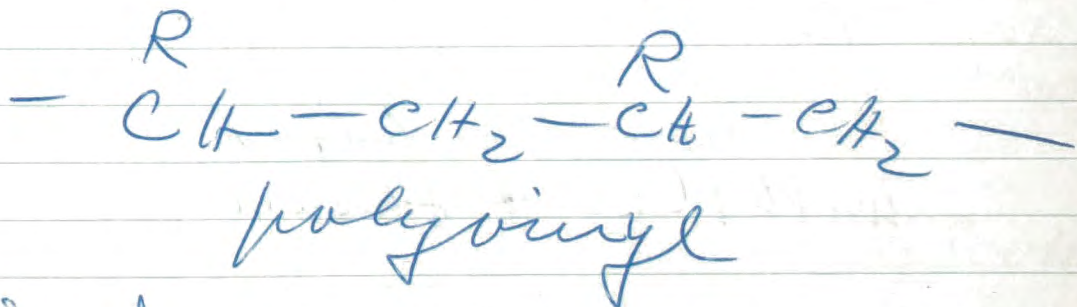 R R
— CH — CH₂ — CH — CH₂ —
polyvinyl